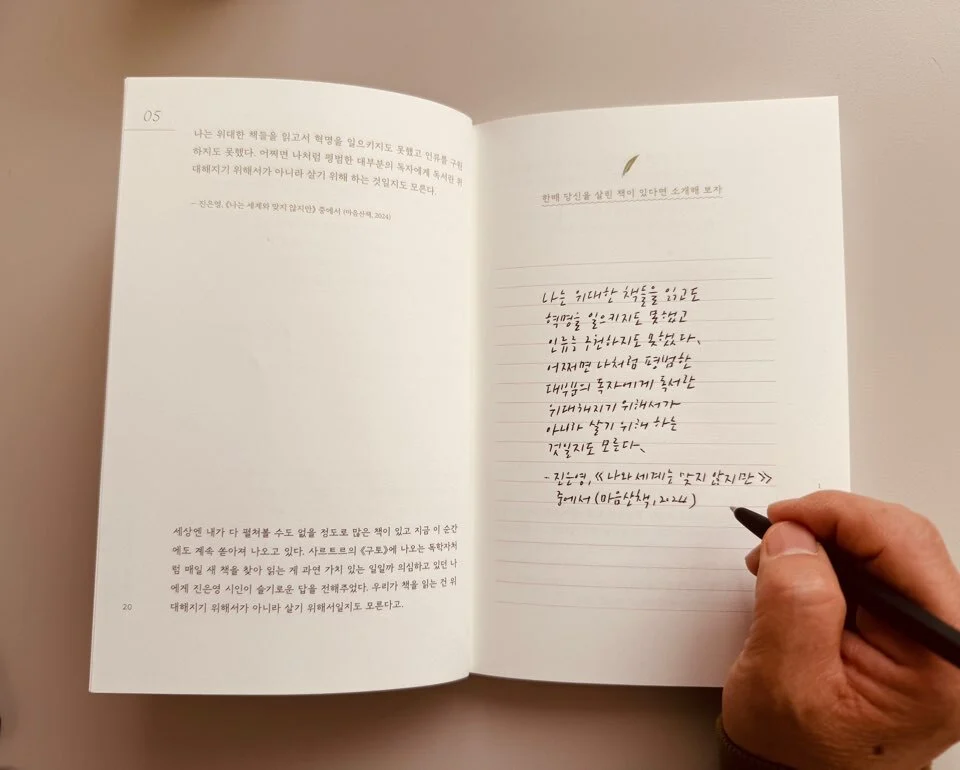 05
나는 위대한 책들을 읽고서 혁명을 일으키지도 못했고 인류를 구원
하지도 못했다. 어쩌면 나처럼 평범한 대부분의 독자에게 독서란 위
대해지기 위해서가 아니라 살기 위해 하는 것일지도 모른다.
– 진은영, 《나는 세계와 맞지 않지만》 중에서 (마음산책, 2024)
세상엔 내가 다 펼쳐볼 수도 없을 정도로 많은 책이 있고 지금 이 순간
에도 계속 쏟아져 나오고 있다. 사르트르의 《구토》에 나오는 독학자처
럼 매일 새 책을 찾아 읽는 게 과연 가치 있는 일일까 의심하고 있던 나
에게 진은영 시인이 슬기로운 답을 전해주었다. 우리가 책을 읽는 건 위
대해지기 위해서가 아니라 살기 위해서일지도 모른다고.
20
한때 당신을 살린 책이 있다면 소개해 보자
나는 위대한 책들을 읽고도
혁명을 일으키지도 못했고
인류를 구원하지도 못했다.
어쩌면 나처럼 평범한
대부분의 독자에게 독서란
위대해지기 위해서가
아니라 살기 위해 하는
것일지도 모른다.
- 진은영, 《나와 세계는 맞지 않지만》
중에서 (마음산책, 2024)